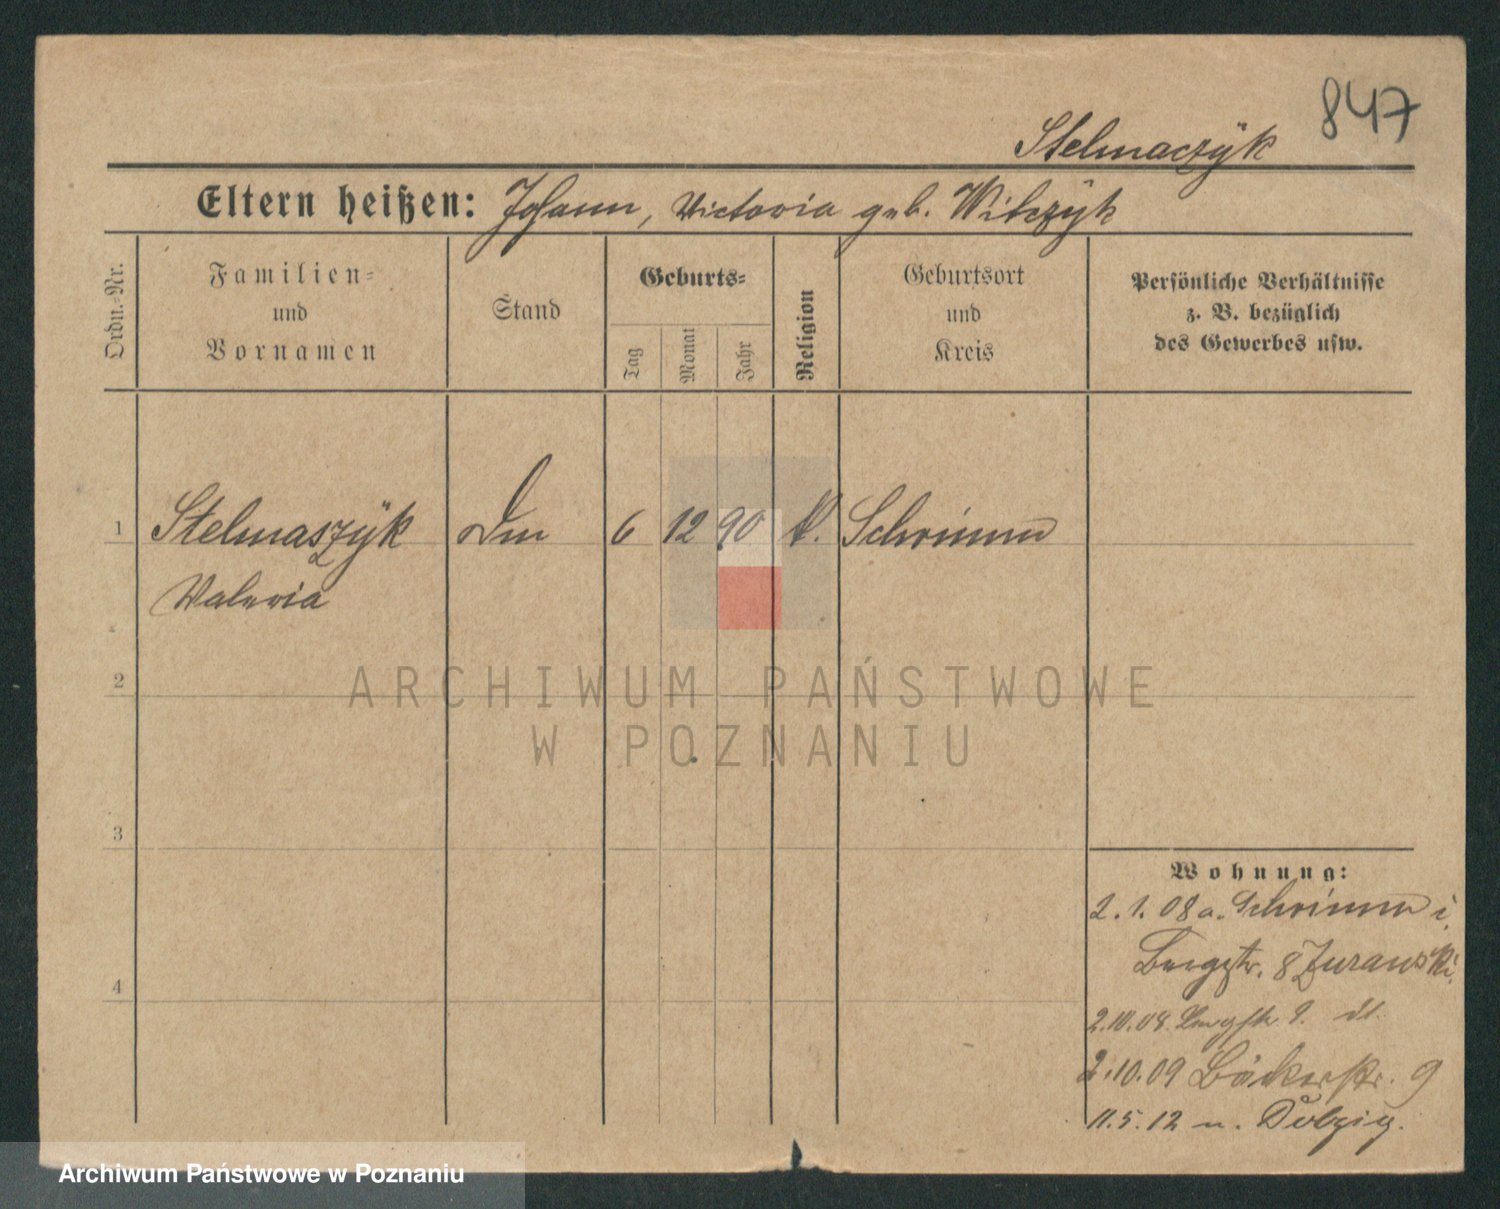 847
Stelmaczÿk
Eltern heißen: Johann, Victoria geb. Wilczÿk
Ordn.-Nr.
Familien-
und
Vornamen
Stand
Geburts-
Tag
Monat
Jahr
Religion
Geburtsort
und
Kreis
Persönliche Verhältnisse
z. B. bezüglich
des Gewerbes usw.
1 Stelmaszÿk Dm 6 12 90 k. Schrimm
Valeria
2
3
4
Wohnung:
2.1.08 a. Schrimm i.
Bergstr. 8 Zuranski.
2.10.08. Bergstr 9.
2.10.09 Bäckerstr. 9
11.5.12 n. Dolzig.
ARCHIWUM PAŃSTWOWE
W POZNANIU
Archiwum Państwowe w Poznaniu